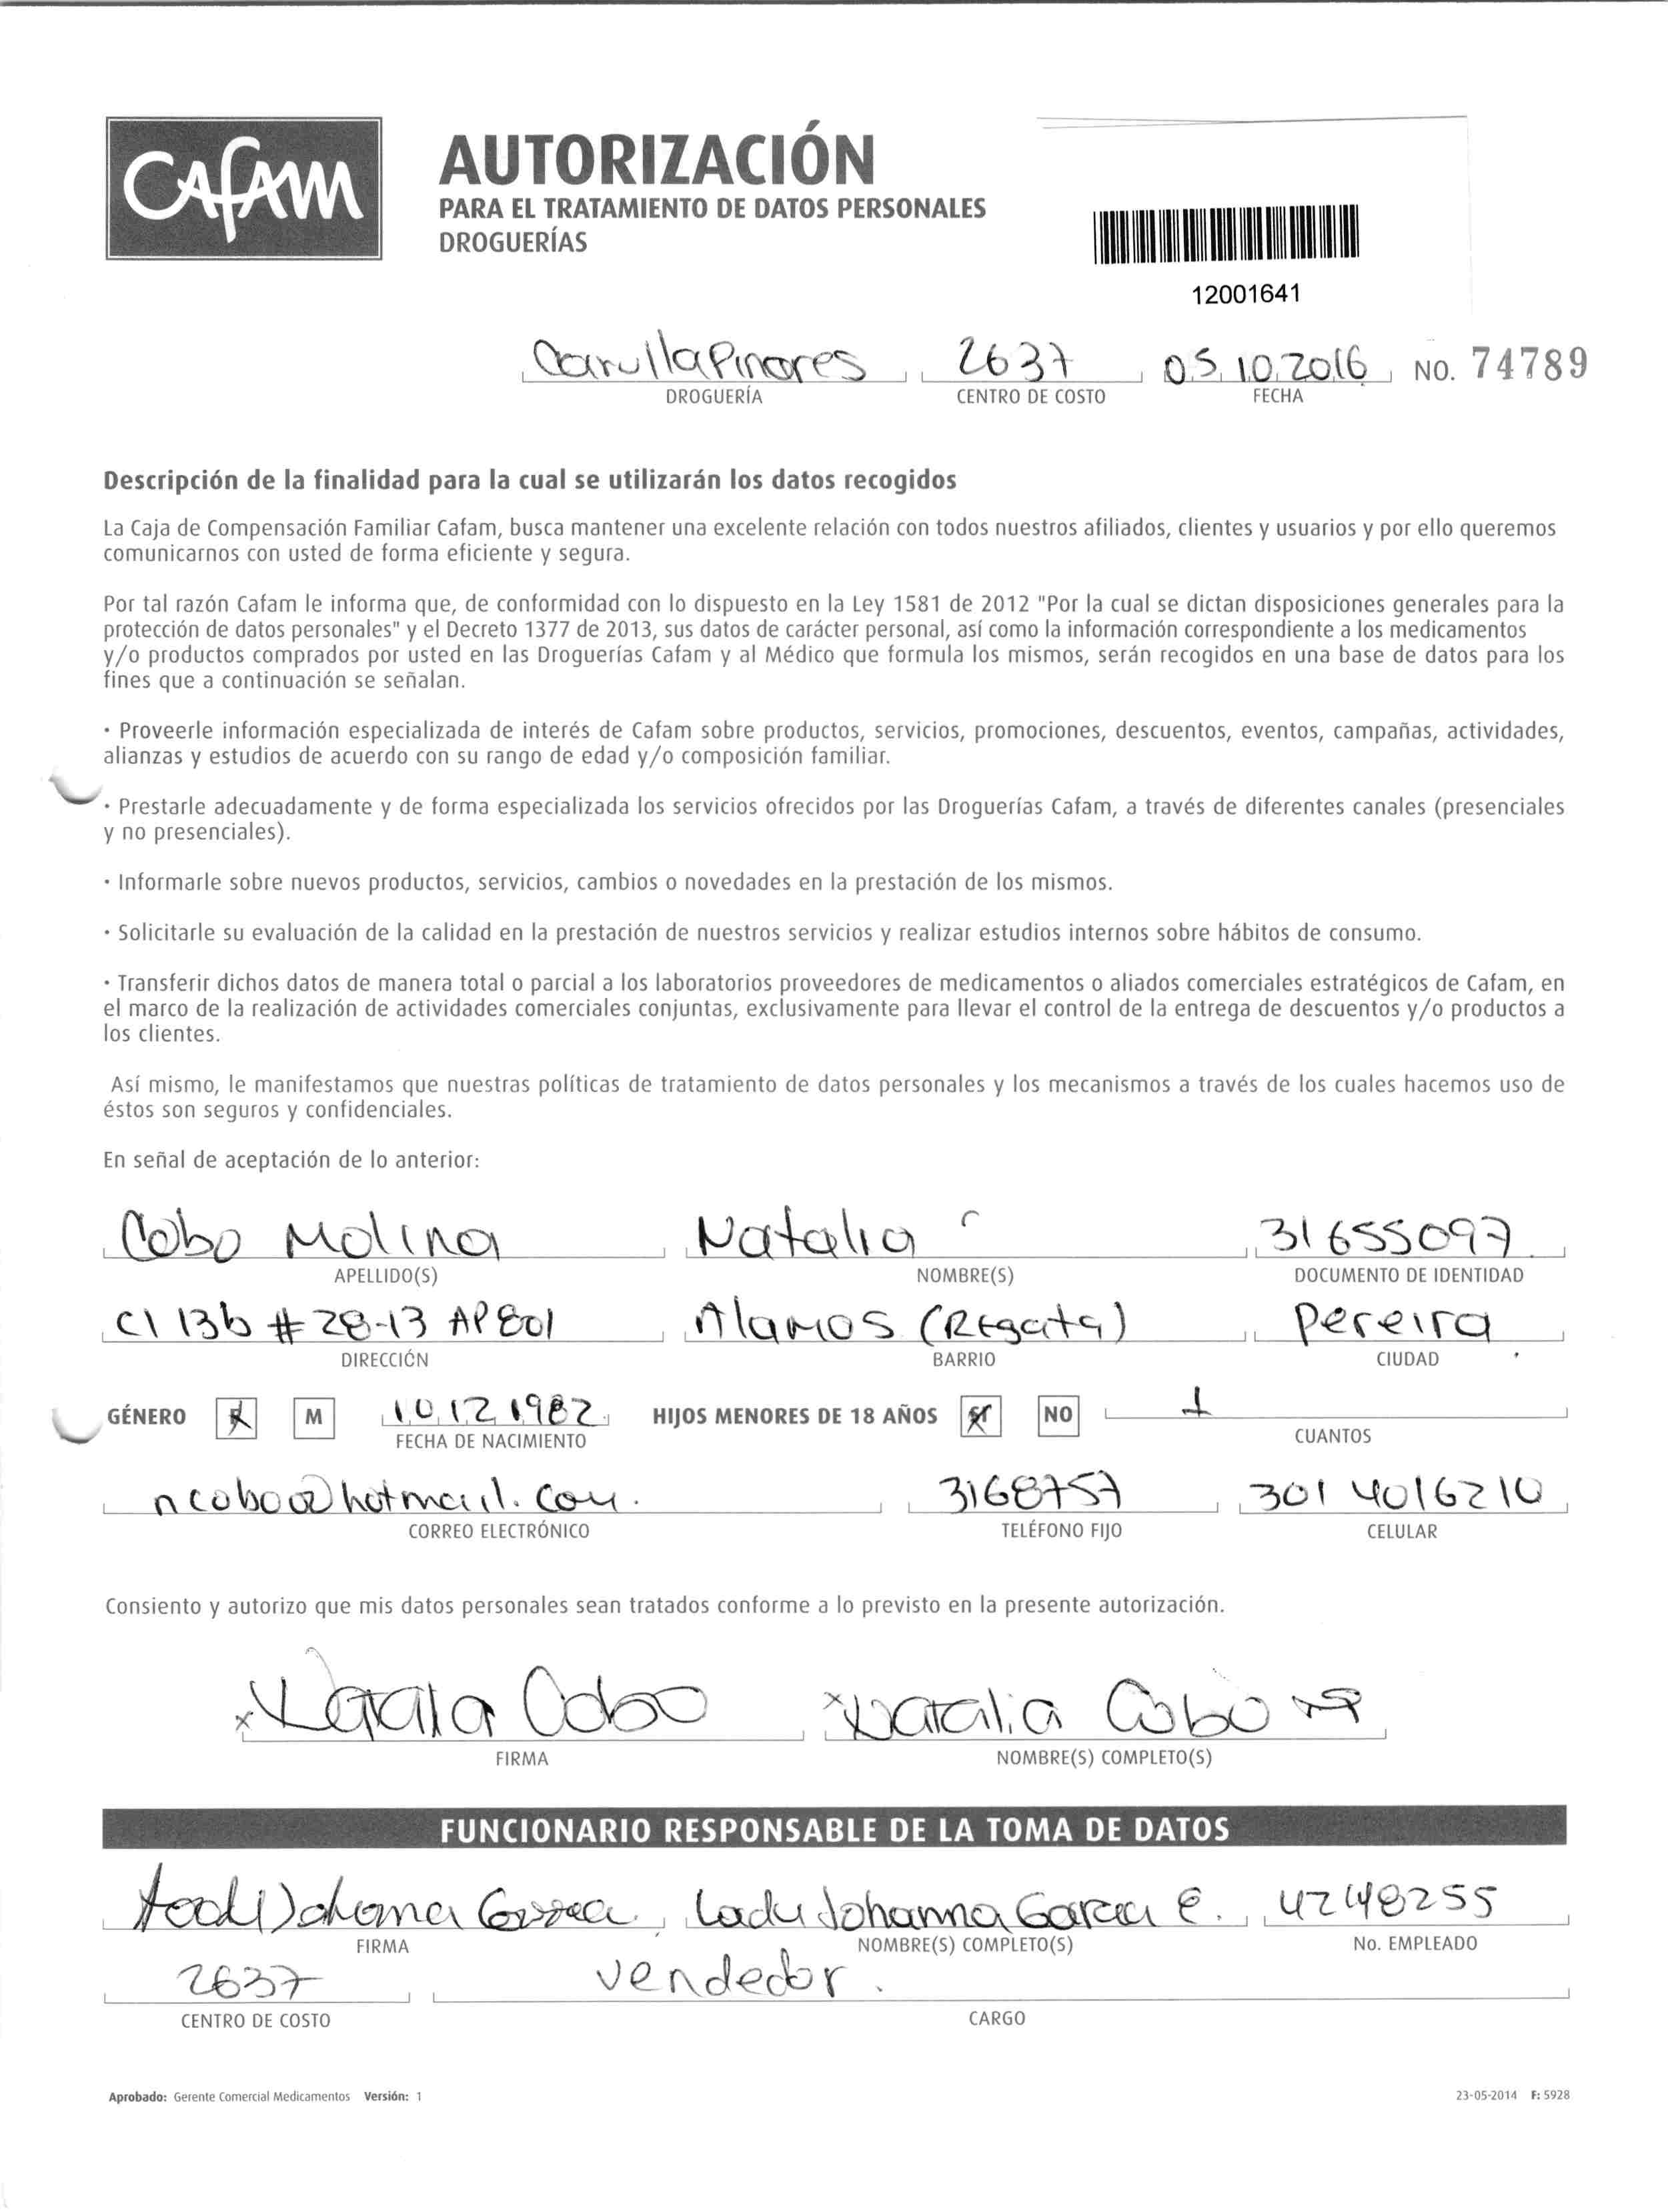 CAFAM
AUTORIZACIÓN
PARA EL TRATAMIENTO DE DATOS PERSONALES
DROGUERÍAS
12001641
Carulla Pinares 2637 05 10 2016 NO. 74789
DROGUERÍA CENTRO DE COSTO FECHA
Descripción de la finalidad para la cual se utilizarán los datos recogidos
La Caja de Compensación Familiar Cafam, busca mantener una excelente relación con todos nuestros afiliados, clientes y usuarios y por ello queremos
comunicarnos con usted de forma eficiente y segura.
Por tal razón Cafam le informa que, de conformidad con lo dispuesto en la Ley 1581 de 2012 "Por la cual se dictan disposiciones generales para la
protección de datos personales" y el Decreto 1377 de 2013, sus datos de carácter personal, así como la información correspondiente a los medicamentos
y/o productos comprados por usted en las Droguerías Cafam y al Médico que formula los mismos, serán recogidos en una base de datos para los
fines que a continuación se señalan.
· Proveerle información especializada de interés de Cafam sobre productos, servicios, promociones, descuentos, eventos, campañas, actividades,
alianzas y estudios de acuerdo con su rango de edad y/o composición familiar.
· Prestarle adecuadamente y de forma especializada los servicios ofrecidos por las Droguerías Cafam, a través de diferentes canales (presenciales
y no presenciales).
· Informarle sobre nuevos productos, servicios, cambios o novedades en la prestación de los mismos.
· Solicitarle su evaluación de la calidad en la prestación de nuestros servicios y realizar estudios internos sobre hábitos de consumo.
· Transferir dichos datos de manera total o parcial a los laboratorios proveedores de medicamentos o aliados comerciales estratégicos de Cafam, en
el marco de la realización de actividades comerciales conjuntas, exclusivamente para llevar el control de la entrega de descuentos y/o productos a
los clientes.
Así mismo, le manifestamos que nuestras políticas de tratamiento de datos personales y los mecanismos a través de los cuales hacemos uso de
éstos son seguros y confidenciales.
En señal de aceptación de lo anterior:
Cobo Molina Natalia 31655097
APELLIDO(S) NOMBRE(S) DOCUMENTO DE IDENTIDAD
Cl 13b # 28-13 AP 801 Alamos (Regata) Pereira
DIRECCIÓN BARRIO CIUDAD
GÉNERO F M 10 12 1982 HIJOS MENORES DE 18 AÑOS SI NO 1
FECHA DE NACIMIENTO CUANTOS
ncobo@hotmail.com. 3168757 301 4016210
CORREO ELECTRÓNICO TELÉFONO FIJO CELULAR
Consiento y autorizo que mis datos personales sean tratados conforme a lo previsto en la presente autorización.
x Natalia Cobo x Natalia Cobo
FIRMA NOMBRE(S) COMPLETO(S)
FUNCIONARIO RESPONSABLE DE LA TOMA DE DATOS
Johanna Garcia Lady Johanna Garcia E. 42148255
FIRMA NOMBRE(S) COMPLETO(S) No. EMPLEADO
2637 vendedor.
CENTRO DE COSTO CARGO
Aprobado: Gerente Comercial Medicamentos Versión: 1 23-05-2014 F: 5928